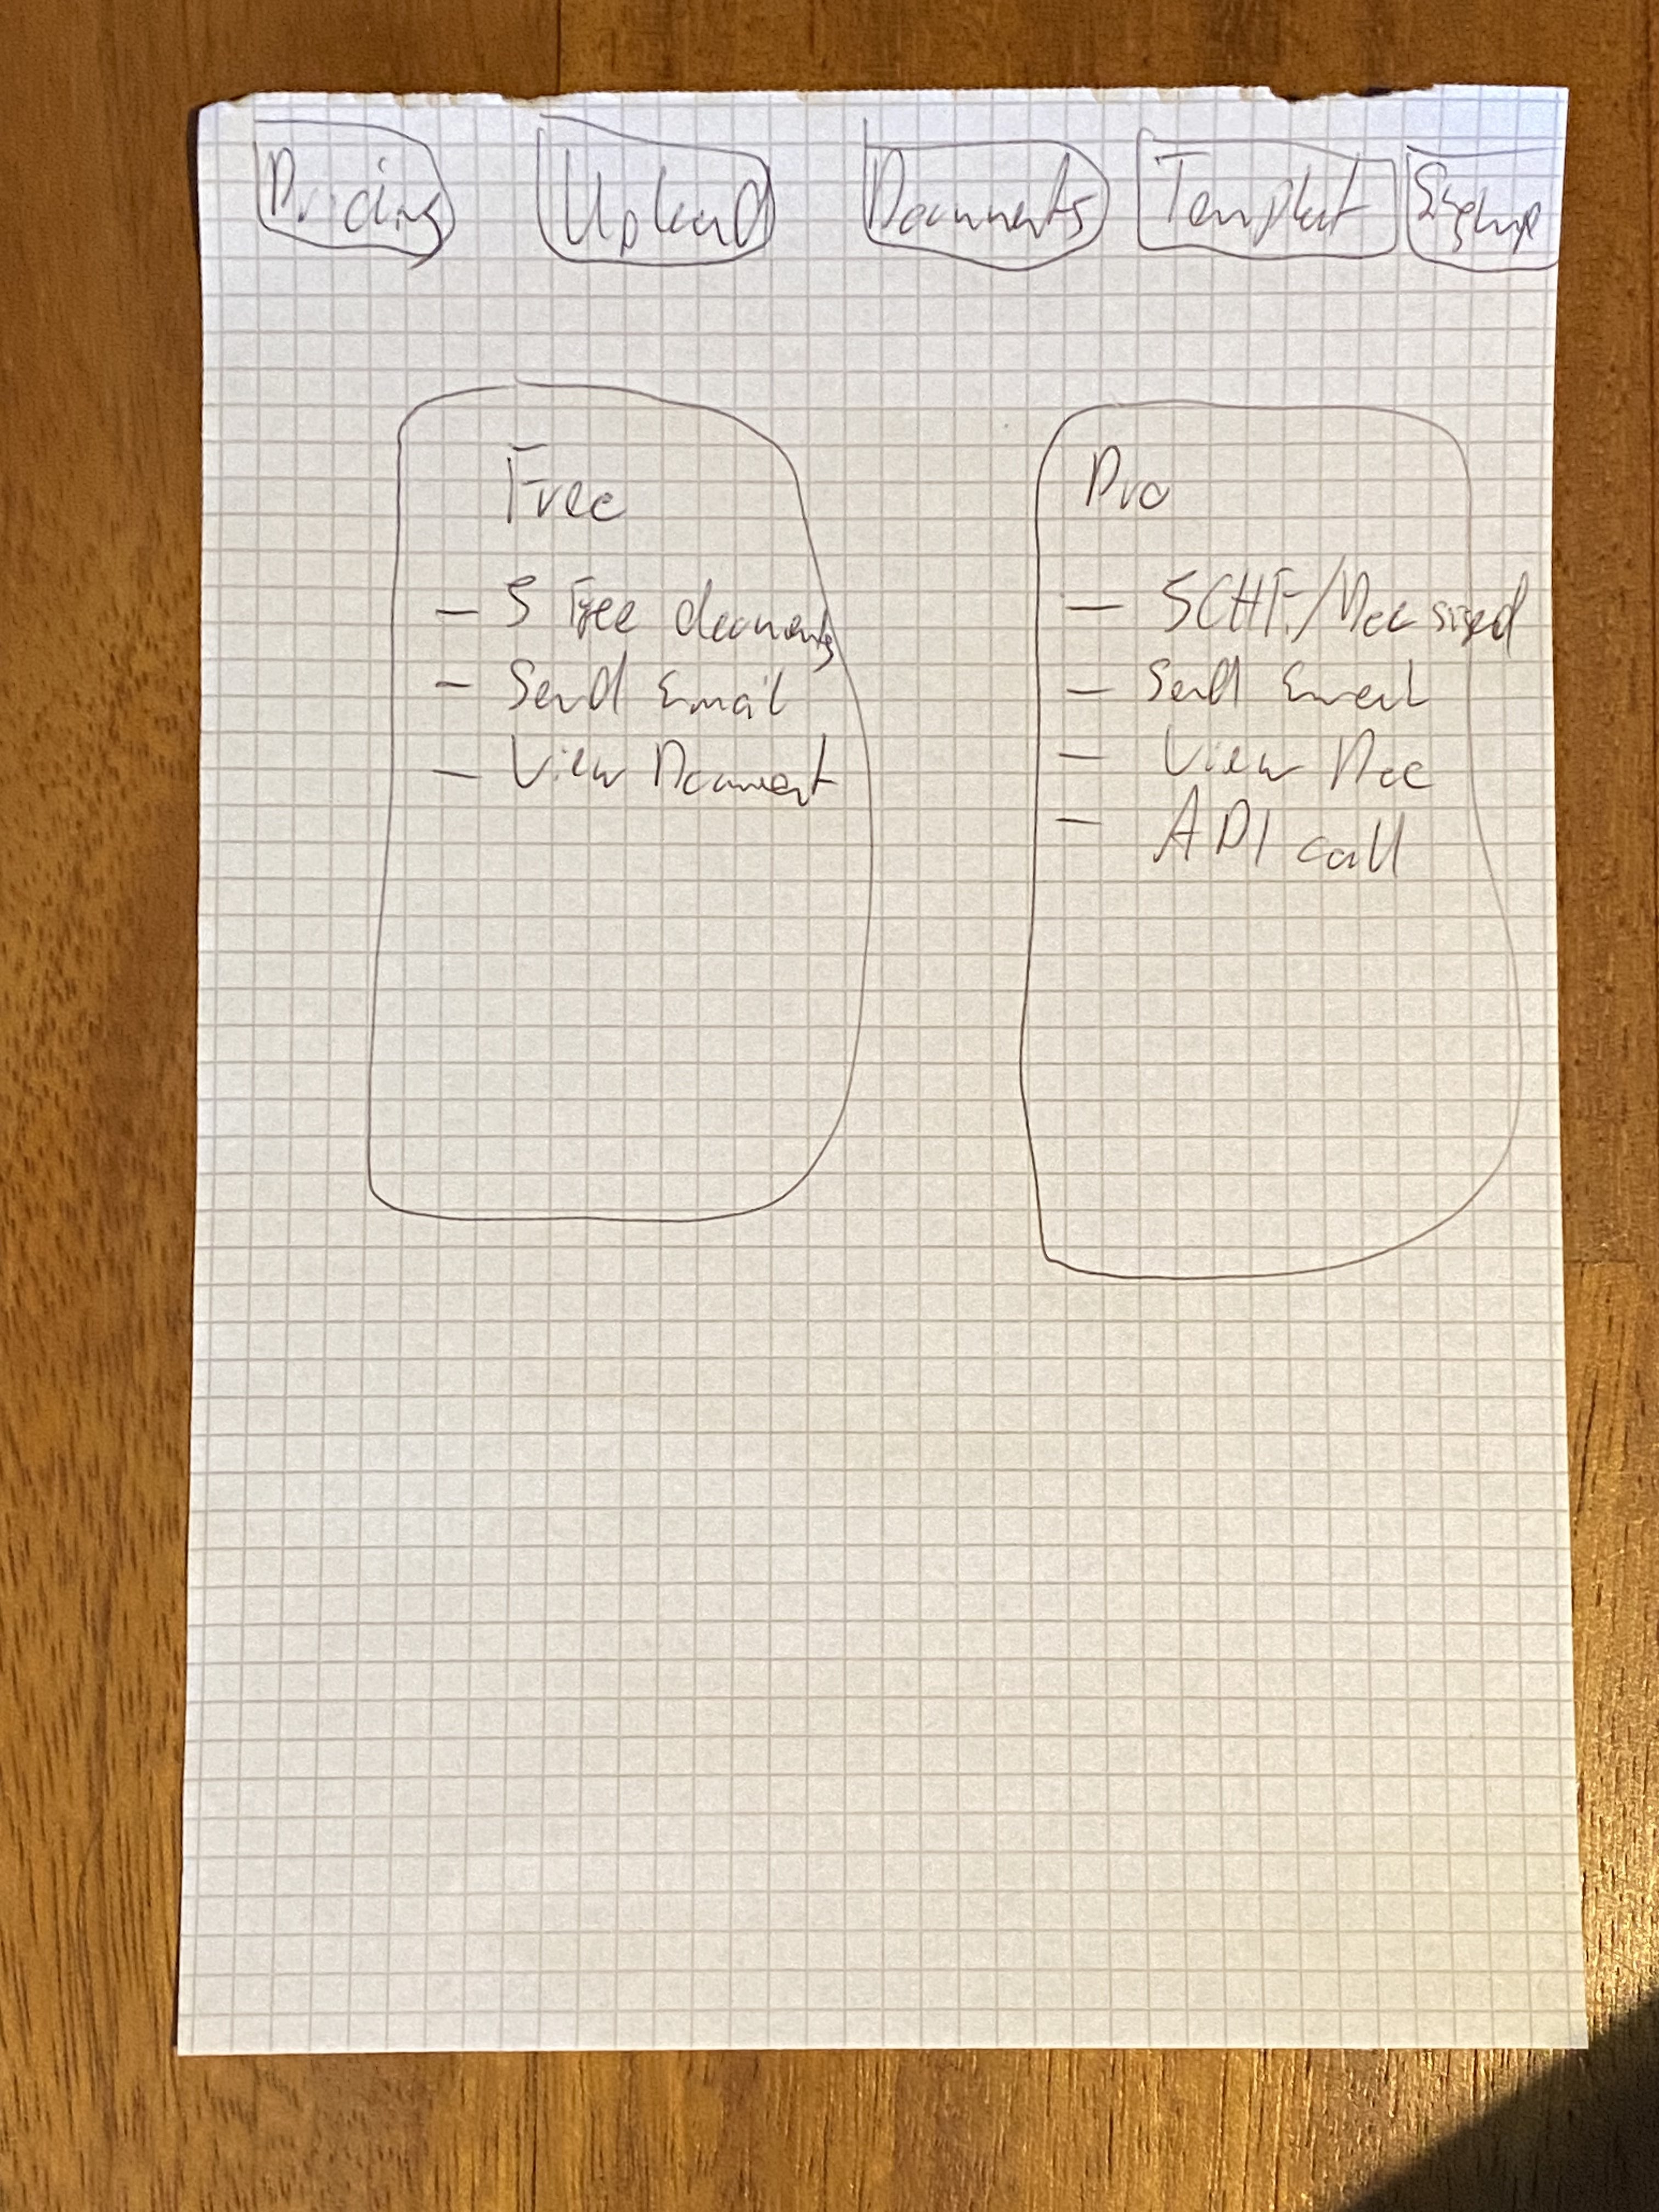 Pricing Upload Documents Templat Signup
Free
- 5 Free documents
- Send Email
- View Document
Pro
- 5CHF/Doc signed
- Send Email
- View Doc
- API call